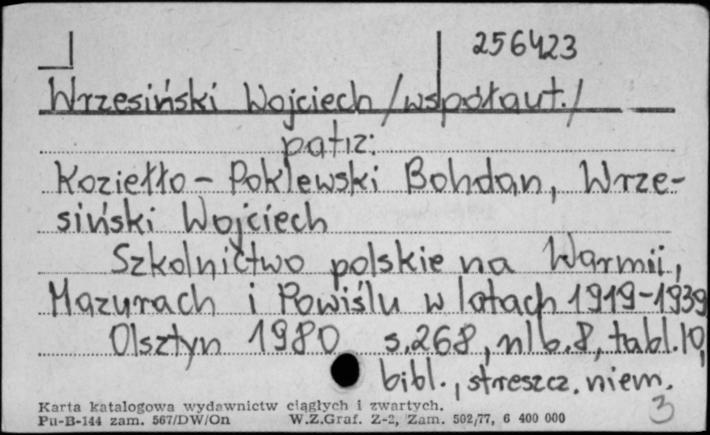 256423
Wrzesiński Wojciech /współaut./
patrz:
Koziełło-Poklewski Bohdan, Wrze-
siński Wojciech
Szkolnictwo polskie na Warmii,
Mazurach i Powiślu w latach 1919-1939
Olsztyn 1980 s.268, nlb.8, tabl.10,
bibl., streszcz. niem.
Karta katalogowa wydawnictw ciągłych i zwartych.
Pu-B-144 zam. 567/DW/On W.Z.Graf. Z-2, Zam. 502/77, 6 400 000
3